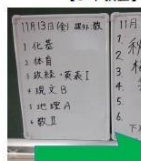 11月13日(金) 課外:数
1 化基
2 体育
3 政経・英表Ⅰ
4 現文B
5 地理A
6 数Ⅱ
11月
1.
2.
3.
4.
5.
6.